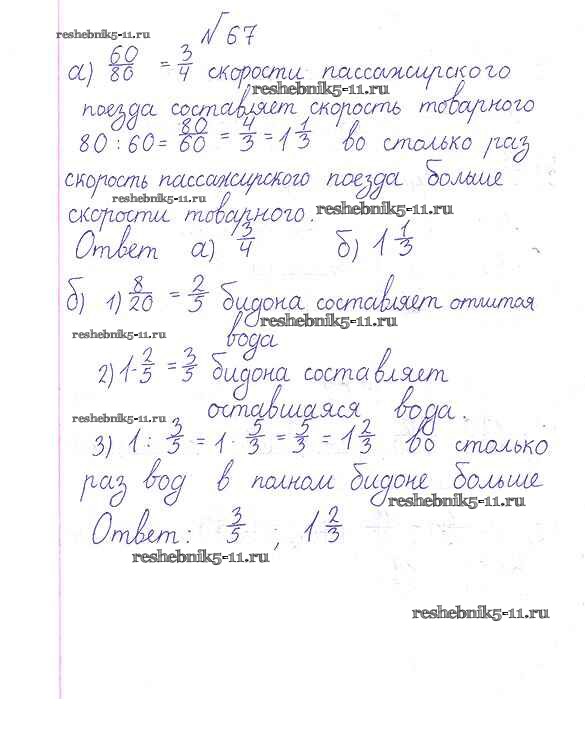 reshebnik5-11.ru
№67
а) 60/80 = 3/4 скорости пассажирского
reshebnik5-11.ru
поезда составляет скорость товарного
80 : 60 = 80/60 = 4/3 = 1 1/3 во столько раз
reshebnik5-11.ru
скорость пассажирского поезда больше
reshebnik5-11.ru
скорости товарного. reshebnik5-11.ru
Ответ а) 3/4 б) 1 1/3
б) 1) 8/20 = 2/5 бидона составляет отлитая
reshebnik5-11.ru
reshebnik5-11.ru
вода
2) 1 - 2/5 = 3/5 бидона составляет
оставшаяся вода.
reshebnik5-11.ru
3) 1 : 3/5 = 1 · 5/3 = 5/3 = 1 2/3 во столько
раз вод в полном бидоне больше
reshebnik5-11.ru
Ответ: 3/5 ; 1 2/3
reshebnik5-11.ru
reshebnik5-11.ru